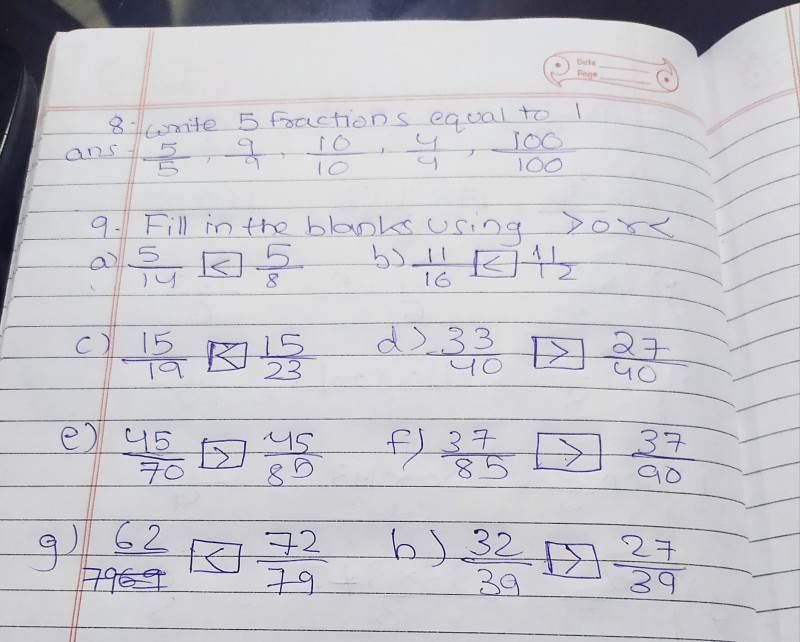 Date
Page
8- Write 5 fractions equal to 1
ans- 5/5, 9/9, 10/10, 4/4, 100/100
9- Fill in the blanks using > or <
a) 5/14 < 5/8 b) 11/16 < 11/12
c) 15/19 < 15/23 d) 33/40 > 27/40
e) 45/70 > 45/85 f) 37/85 > 37/90
g) 62/79 < 72/79 h) 32/39 > 27/39